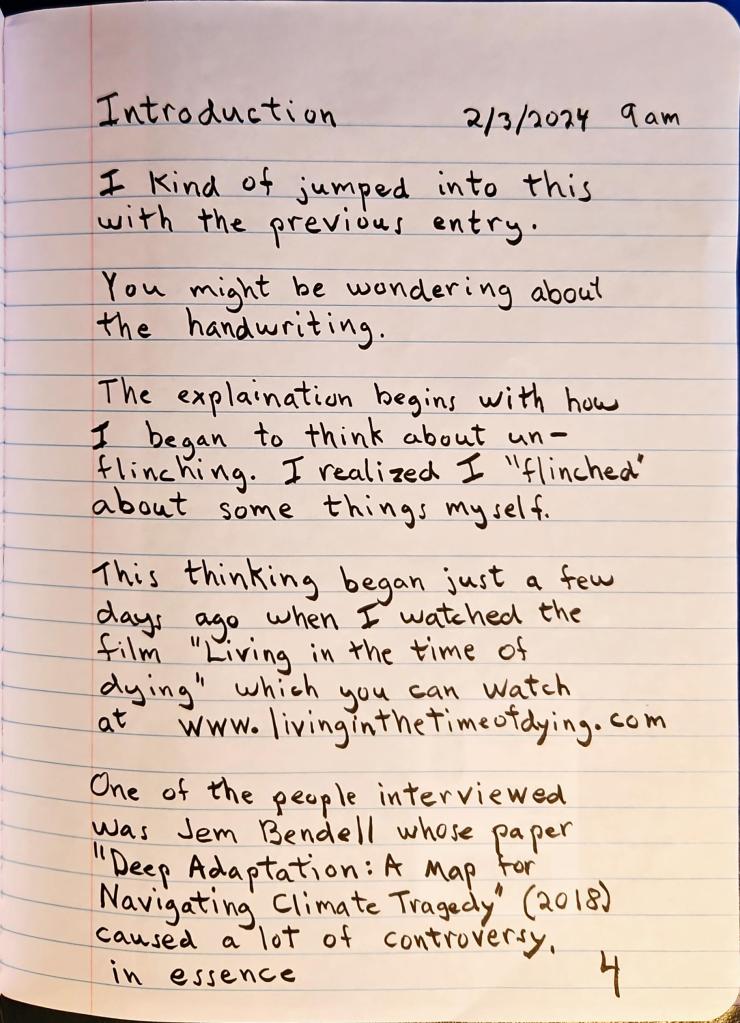 Introduction 2/3/2024 9am
I kind of jumped into this
with the previous entry.
You might be wondering about
the handwriting.
The explaination begins with how
I began to think about un-
flinching. I realized I "flinched"
about some things myself.
This thinking began just a few
days ago when I watched the
film "Living in the time of
dying" which you can watch
at www.livinginthetimeofdying.com
One of the people interviewed
was Jem Bendell whose paper
"Deep Adaptation: A Map for
Navigating Climate Tragedy" (2018)
caused a lot of controversy,
in essence 4